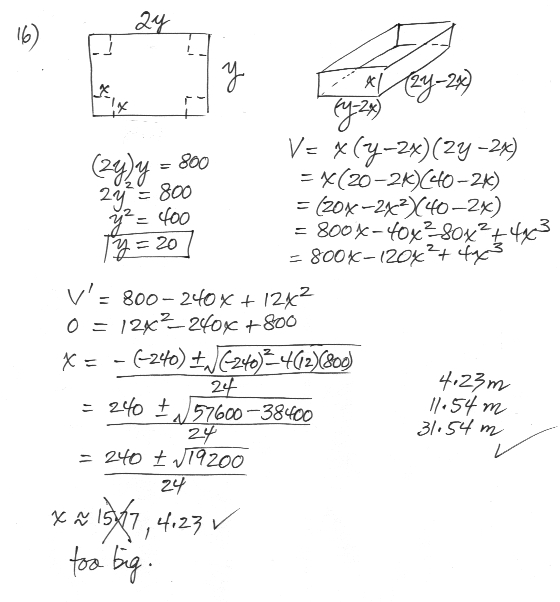 16)
2y
y
x
x
x
(2y-2x)
(y-2x)
(2y)y = 800
2y² = 800
y² = 400
y = 20
V = x(y-2x)(2y-2x)
= x(20-2x)(40-2x)
= (20x-2x²)(40-2x)
= 800x-40x²-80x²+4x³
= 800x-120x²+4x³
V' = 800-240x+12x²
0 = 12x²-240x+800
x = -(-240) ± √(-240)²-4(12)(800)
24
= 240 ± √57600-38400
24
= 240 ± √19200
24
x ≈ 15.77, 4.23 ✓
too big.
4.23m
11.54 m
31.54 m
✓